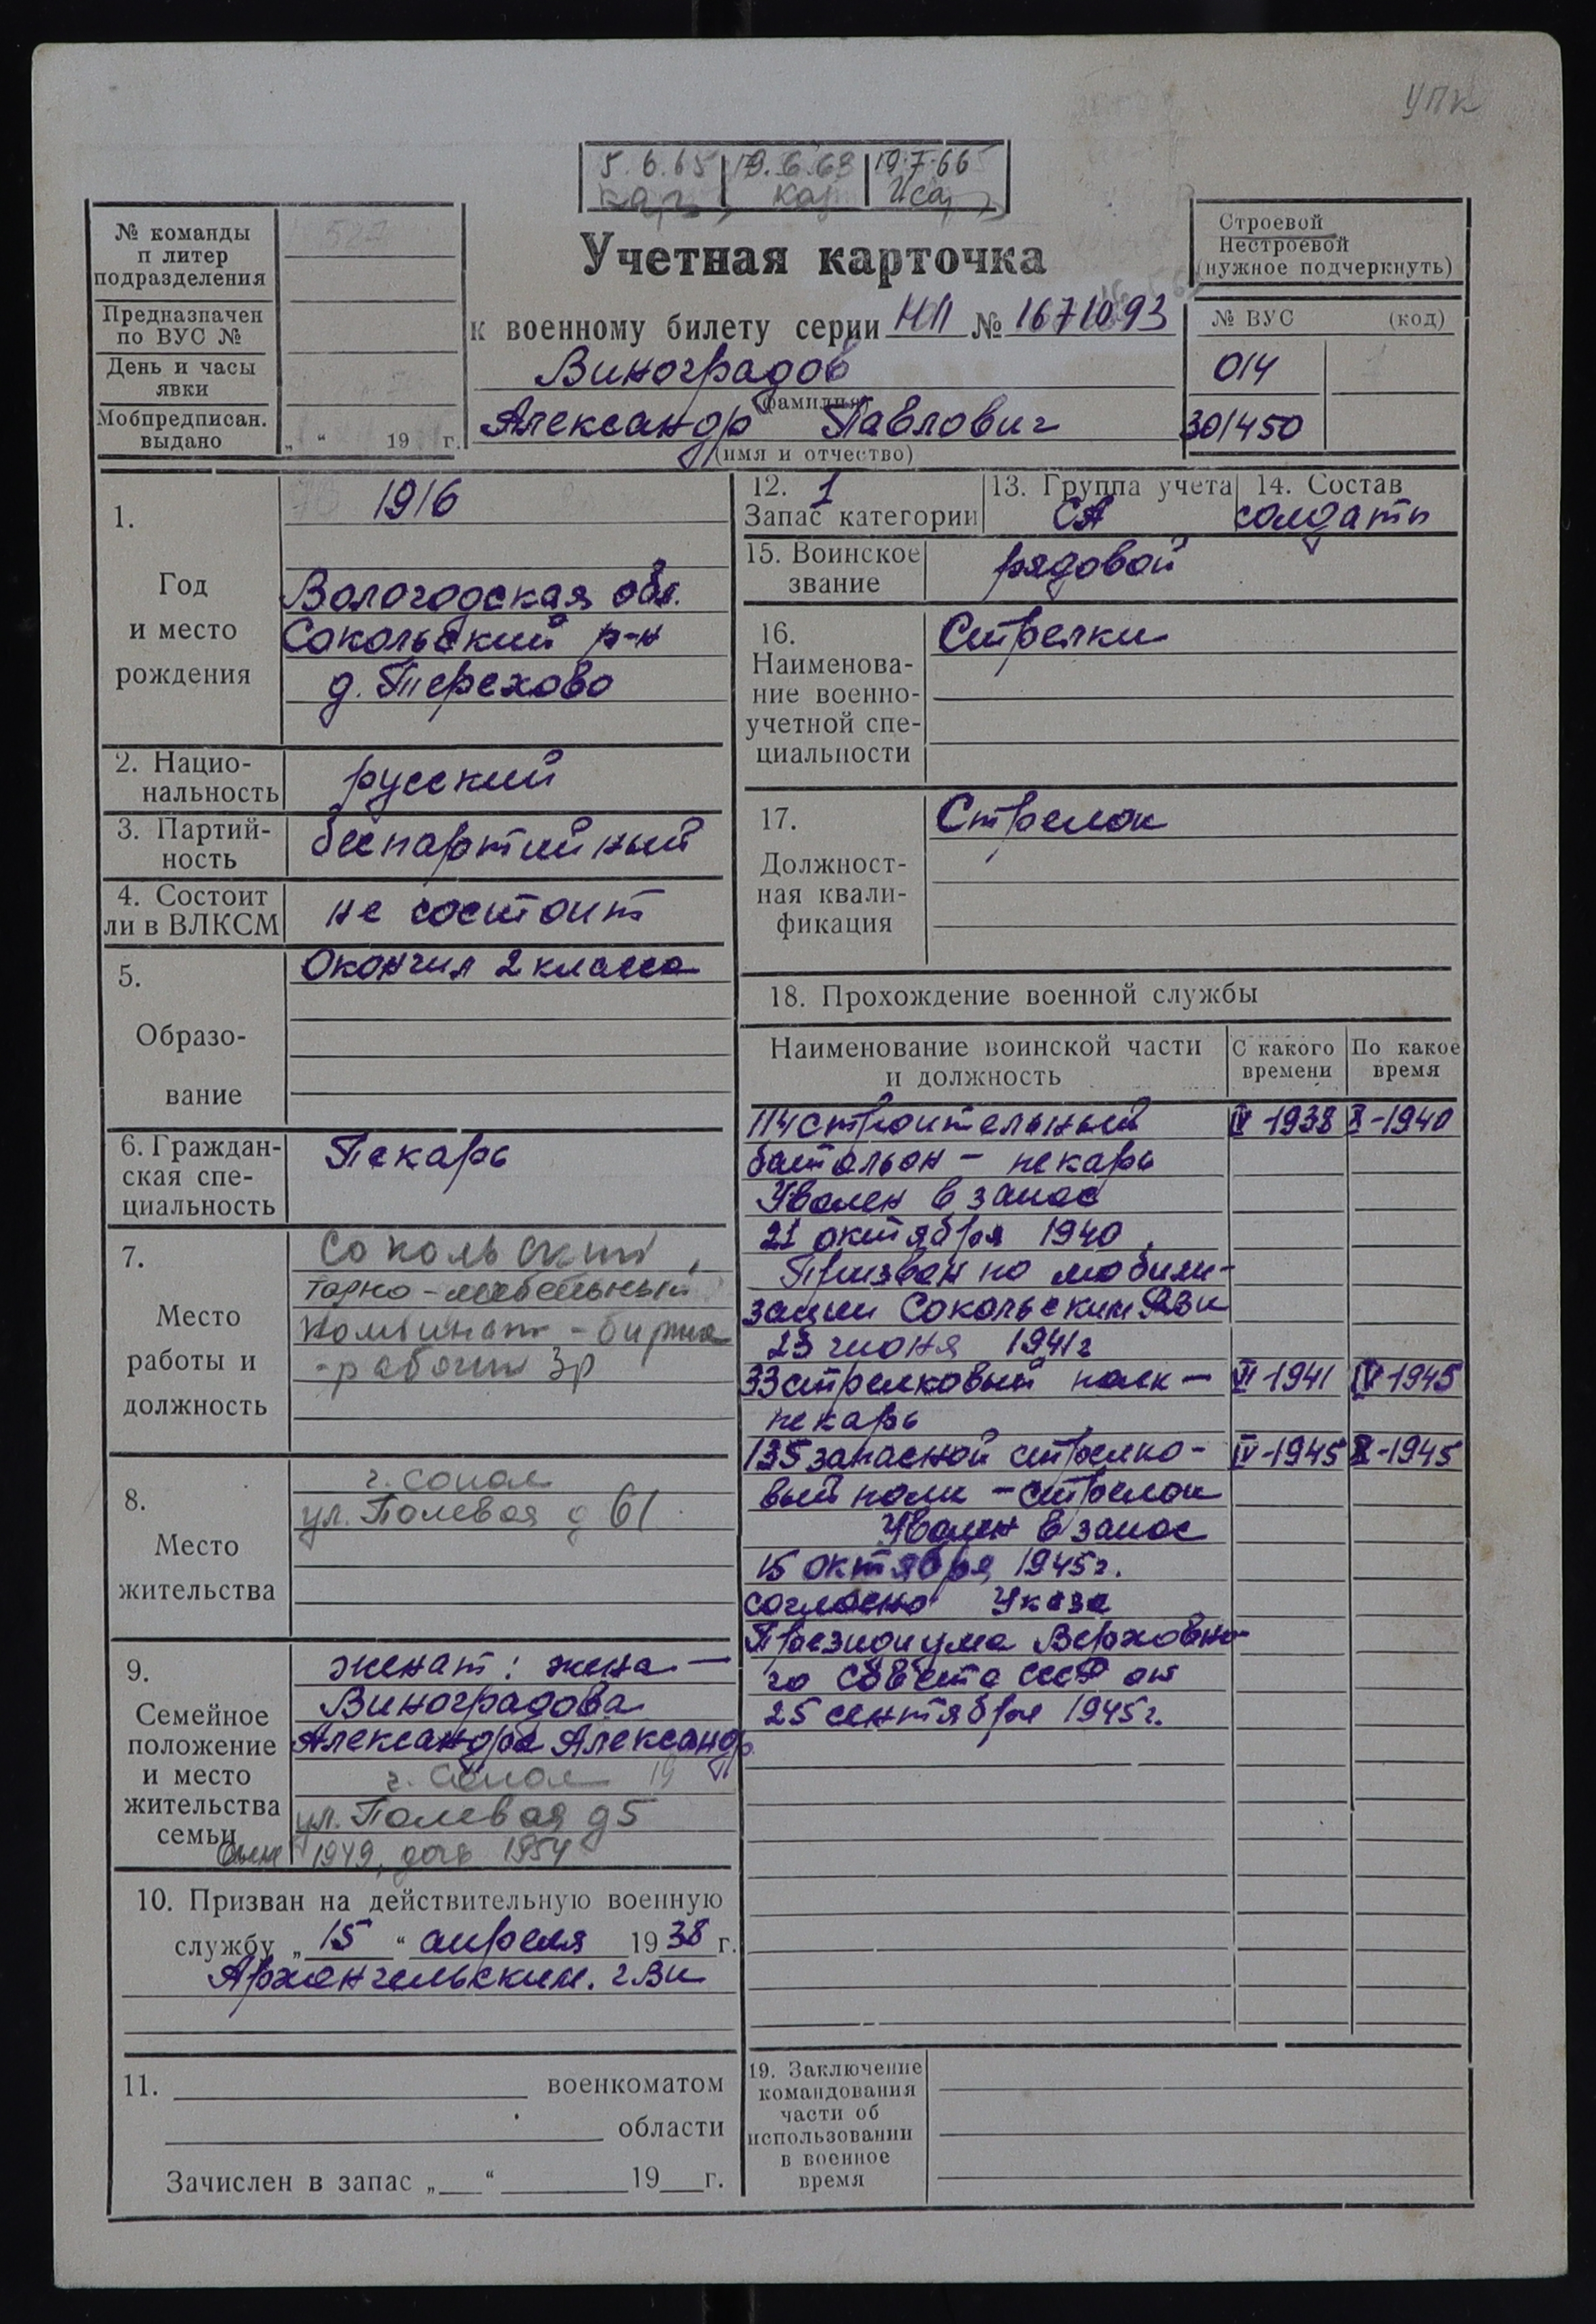 УПК
5.6.65 19.6.63 19.7.66
№ команды
п литер
подразделения
Предназначен
по ВУС №
День и часы
явки
Мобпредписан.
выдано
„ “ 19 г.
Учетная карточка
к военному билету серии НП № 1671093
Виноградов
(фамилия)
Александр Павлович
(имя и отчество)
Строевой
Нестроевой
(нужное подчеркнуть)
№ ВУС (код)
014 1
301450
1.
Год
и место
рождения
1916
Вологодская обл.
Сокольский р-н
д. Терехово
2. Нацио-
нальность
русский
3. Партий-
ность
беспартийный
4. Состоит
ли в ВЛКСМ
не состоит
5.
Образо-
вание
Окончил 2 класса
6. Граждан-
ская спе-
циальность
Пекарь
7.
Место
работы и
должность
Сокольский
тарно-мебельный
комбинат - биржа
- рабочий 3р
8.
Место
жительства
г. Сокол
ул. Полевая д 61
9.
Семейное
положение
и место
жительства
семьи
женат: жена —
Виноградова
Александра Александр
г. Сокол 19
ул. Полевая д5
сын 1949, дочь 1954
10. Призван на действительную военную
службу „ 15 “ апреля 1938 г.
Архангельским. гвк
11. военкоматом
области
Зачислен в запас „ “ 19 г.
12. 1
Запас категории
13. Группа учета
СА
14. Состав
солдаты
15. Воинское
звание
рядовой
16.
Наименова-
ние военно-
учетной спе-
циальности
Стрелки
17.
Должност-
ная квали-
фикация
Стрелок
18. Прохождение военной службы
Наименование воинской части
и должность
С какого
времени
По какое
время
114 строительный IV 1938 X-1940
батальон — пекарь
Уволен в запас
21 октября 1940
Призван по мобили-
зации Сокольским РВК
23 июня 1941г
33 стрелковый полк — VI 1941 IV 1945
пекарь
135 запасной стрелко- IV-1945 X-1945
вый полк — стрелок
Уволен в запас
15 октября 1945г.
согласно Указа
Президиума Верховно-
го Совета СССР от
25 сентября 1945г.
19. Заключение
командования
части об
использовании
в военное
время